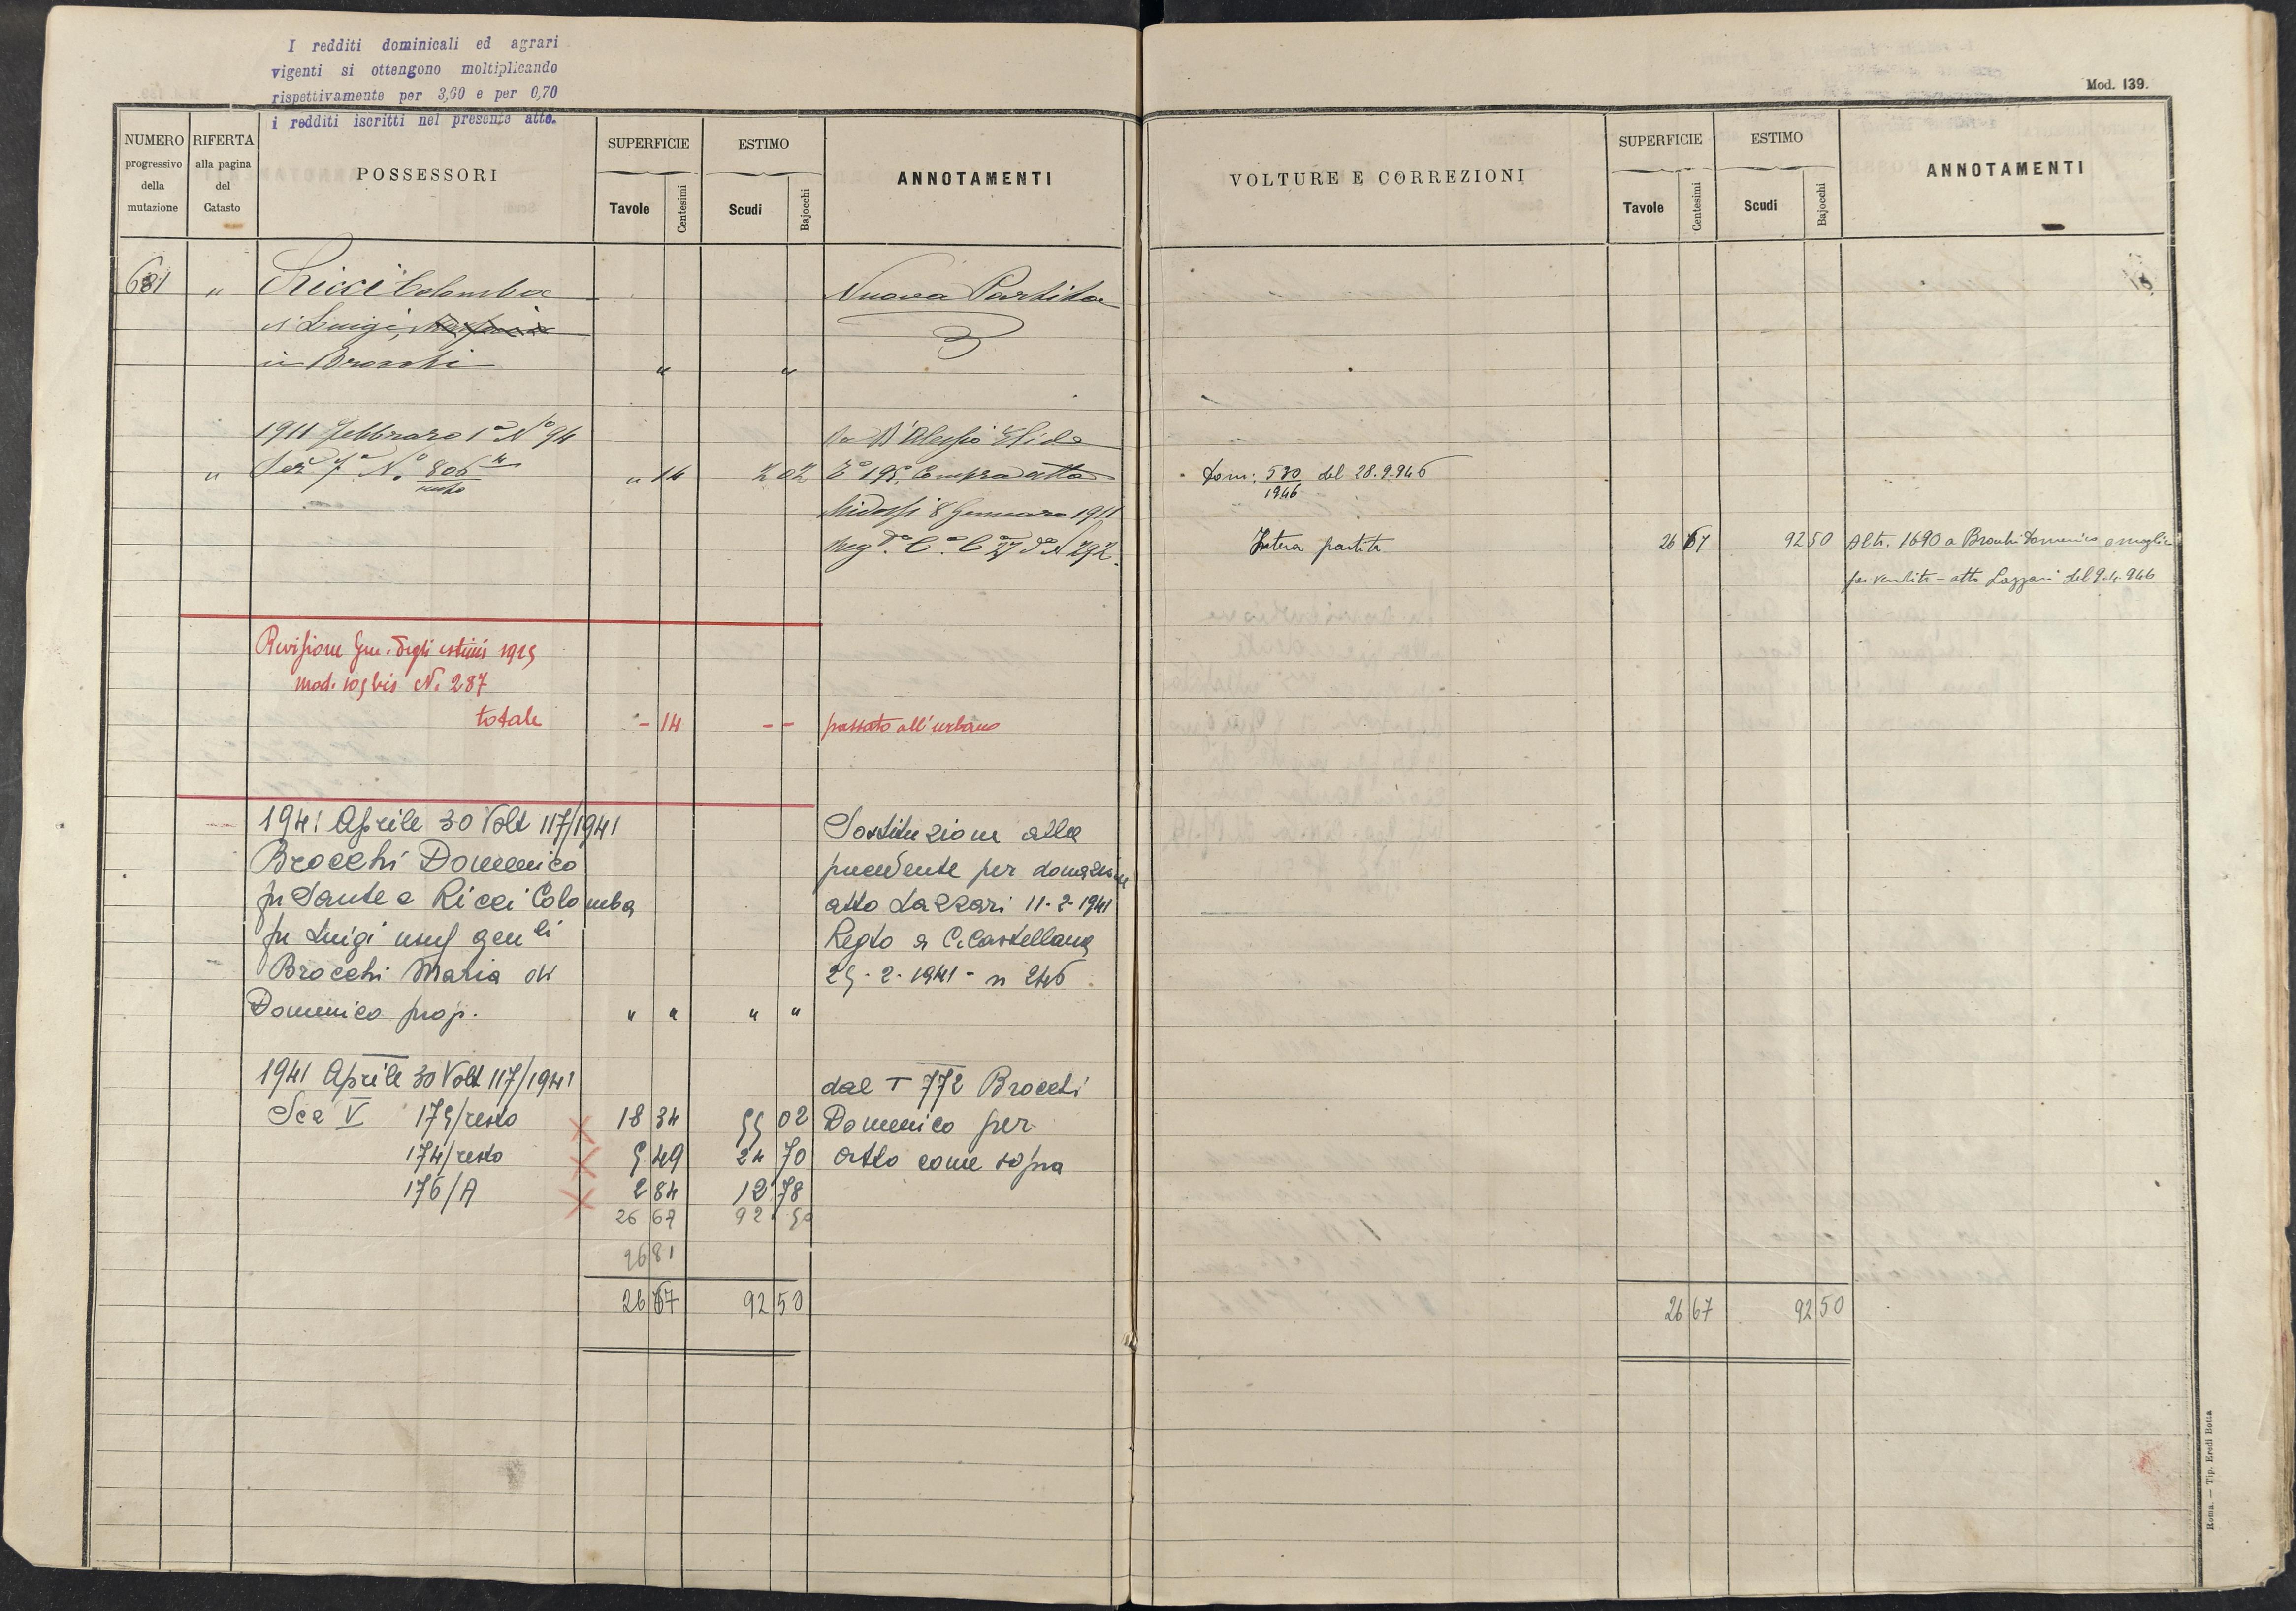 I redditi dominicali ed agrari
vigenti si ottengono moltiplicando
rispettivamente per 3,60 e per 0,70
i redditi iscritti nel presente atto.
Mod. 139.
NUMERO progressivo della mutazione
RIFERTA alla pagina del Catasto
POSSESSORI
SUPERFICIE
Tavole
Centesimi
ESTIMO
Scudi
Bajocchi
ANNOTAMENTI
681 " Ricci Colomba Nuova Partita
di Luigi,
in Brocchi " "
1911 Febbraro 1° N° 94 Da D'Alessio Elide
" Sez. 7a N. 806 resto " 14 2 02 T° 195. Compra atto
Midossi 8 Gennaro 1911
Reg. C. C. 27 do N 292.
Revisione Gen. degli estimi 1925
mod. bis N. 287
totale - 14 - - passato all'urbano
1941 Aprile 30 Volt 117/1941 Sostituzione alla
Brocchi Domenico precedente per donazione
fu Sante e Ricci Colomba atto Lazzari 11-2-1941
fu Luigi usuf genli Regto a C. Castellana
Brocchi Maria di 25-2-1941 - n 246
Domenico prop. " " " "
1941 Aprile 30 Volt 117/1941 dal T 772 Brocchi
Sez V 175/resto 18 34 55 02 Domenico per
174/resto 5 49 24 70 atto come sopra
176/A 2 84 12 78
26 67 92 50
26 81
26 67 92 50
VOLTURE E CORREZIONI
SUPERFICIE
Tavole
Centesimi
ESTIMO
Scudi
Bajocchi
ANNOTAMENTI
Dom: 530/1946 del 28.9.946
Intera partita 26 67 92 50 Al tr. 1690 a Brocchi Domenico e moglie
per vendita - atto Lazzari del 9.4.946
26 67 92 50
Roma. — Tip. Eredi Botta